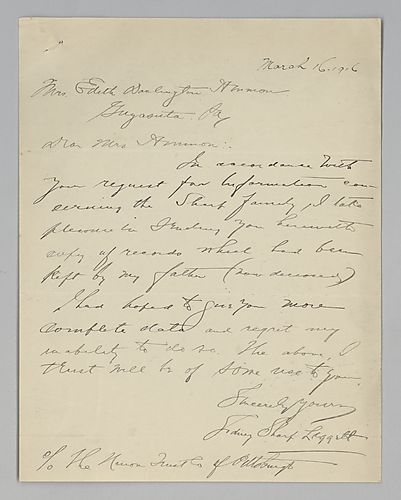 March 16-1916
Mrs. Edith Darlington Ammon
Guyasuta Pa
Dear Mrs Ammon:-
In accordance with
your request for information con
cerning the Sharp family, I take
pleasure in sending you herewith
copy of records which had been
kept by my father (now deceased)
I had hoped to give you more
complete data and regret my
inability to do so. The above, I
trust will be of some use to you.
Sincerely Yours
Sidney Sharp Leggett
c/o The Union Trust Co of Pittsburgh